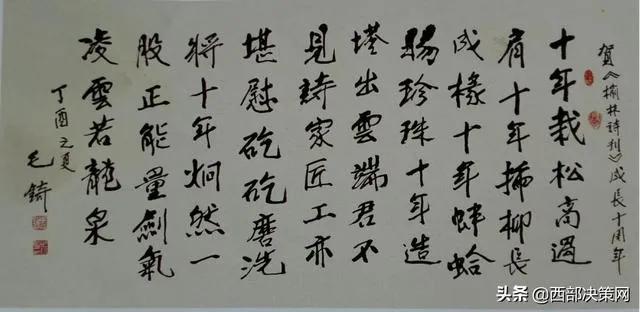 贺《榆林詩刊》成長十周年
十年栽松高過
肩十年插柳長
成椽十年蚌蛤
賜珍珠十年造
塔出雲端君不
見詩家匠工亦
堪慰矻矻磨洗
将十年炯然一
股正能量劍氣
凌雲若龍泉
丁酉之夏
毛錡
头条 @西部决策网